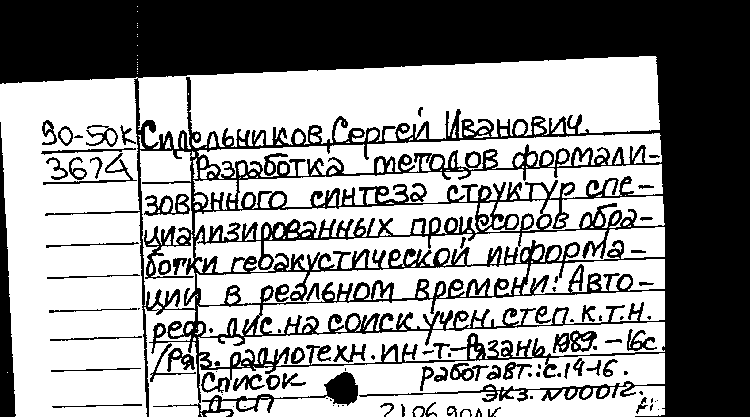 90-50к Сидельников, Сергей Иванович.
3674 Разработка методов формали-
зованного синтеза структур спе-
циализированных процессоров обра-
ботки геоакустической информа-
ции в реальном времени: Авто-
реф. дис. на соиск. учен. степ. к.т.н.
/Ряз. радиотехн. ин-т.-Рязань, 1989. - 16с.
Список работ авт.: с.14-16.
ДСП Экз. N00012.